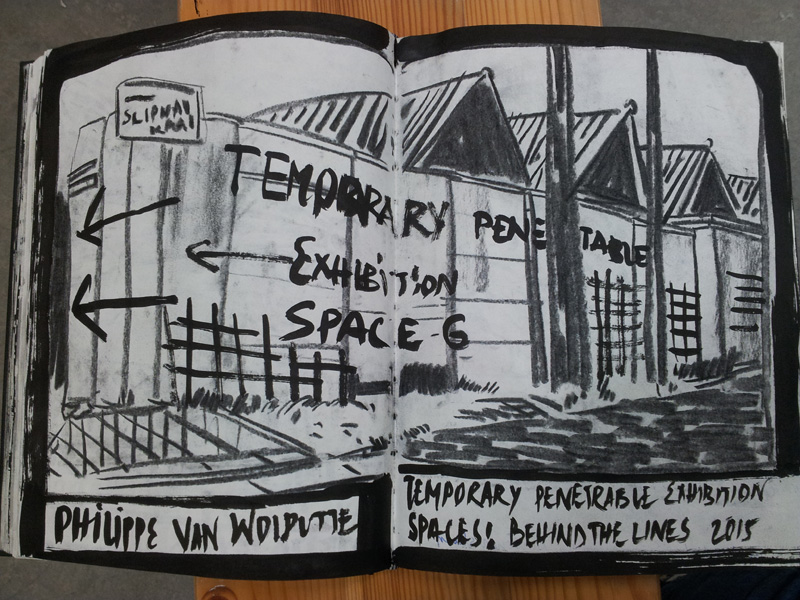 SLIPWAY
KAAI
TEMPORARY PENETRABLE
EXHIBITION
SPACE 6
PHILIPPE VAN WOLPUTTE
TEMPORARY PENETRABLE EXHIBITION
SPACES! BEHIND THE LINES 2015